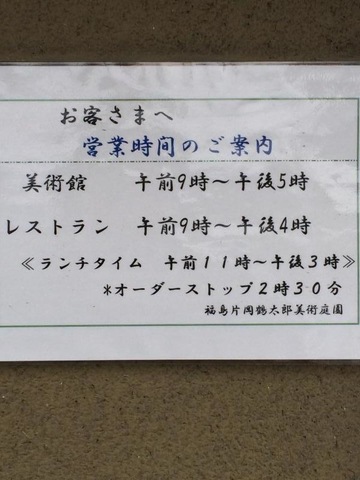 お客さまへ
営業時間のご案内
美術館 午前9時～午後5時
レストラン 午前9時～午後4時
≪ランチタイム 午前11時～午後3時≫
*オーダーストップ2時30分
福島片岡鶴太郎美術庭園